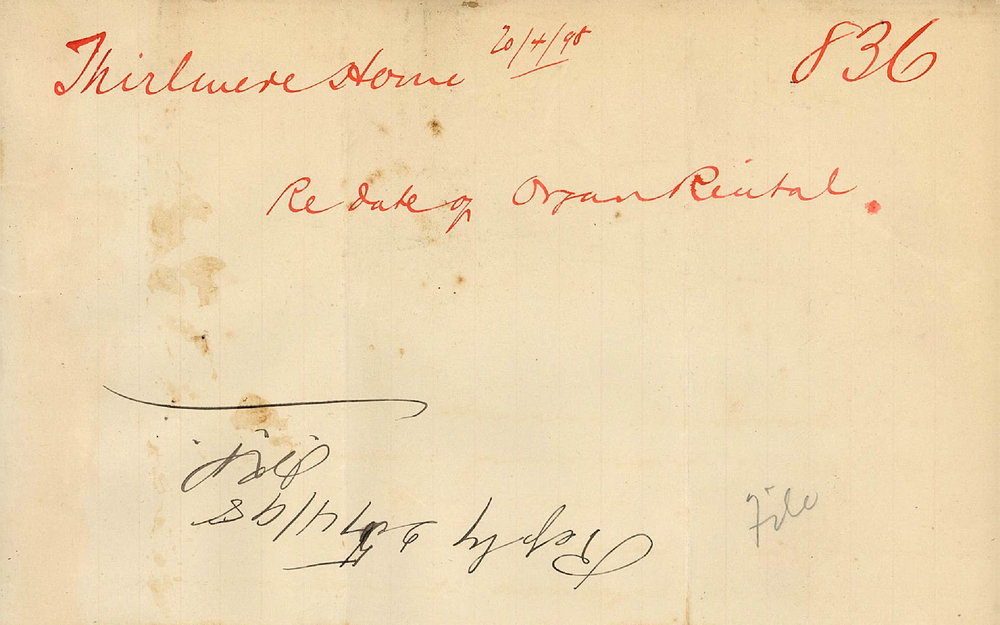 Thirlmere Home 20/4/98 836
Re date of Organ Rental.
File
Reply 20/4/98